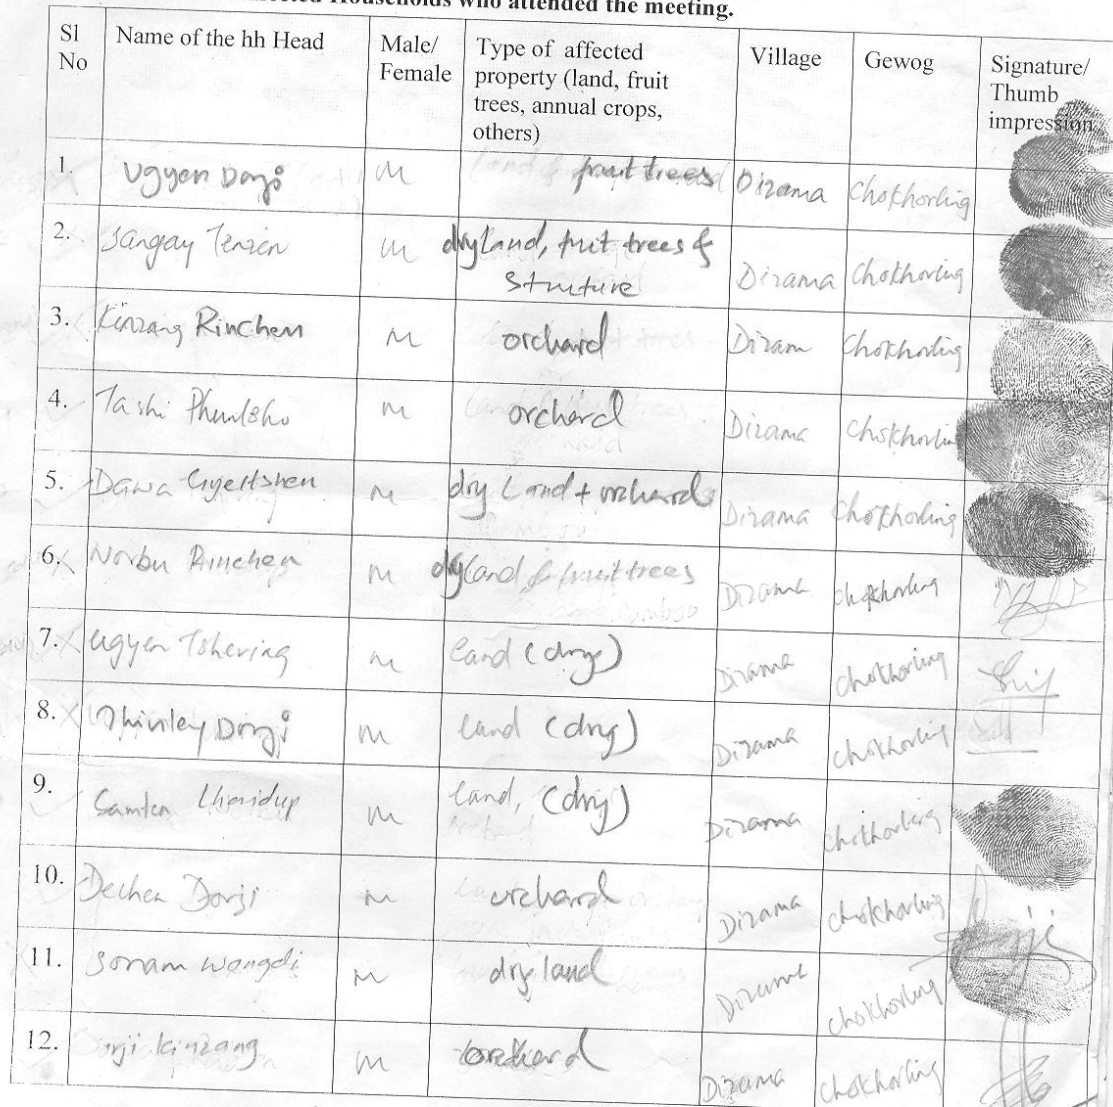 Households who attended the meeting.
Sl No Name of the hh Head Male/ Female Type of affected property (land, fruit trees, annual crops, others) Village Gewog Signature/ Thumb impression
1. Ugyen Dorji M fruit trees Dizama Chokhorling
2. Sangay Tenzin M dry land, fruit trees & structure Dizama Chokhorling
3. Kinzang Rinchen M orchard Dizam Chokhorling
4. Tashi Phuntsho M orchard Dizama Chokhorling
5. Dawa Gyeltshen M dry Land + orchards Dizama Chokhorling
6. Norbu Rinchen M dry land & fruit trees Dizama Chokhorling
7. Ugyen Tshering M land (dry) Dizama Chokhorling
8. Thinley Dorji M land (dry) Dizama Chokhorling
9. Samten Lhendup M land, (dry) Dizama Chokhorling
10. Dechen Dorji M orchard Dizama Chokhorling
11. Sonam Wangdi M dry land Dizama Chokhorling
12. Kinzang M orchard Dizama Chokhorling